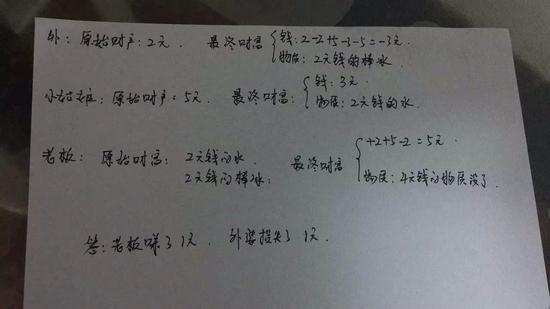 外：原始财产：2元． 最终财富 { 钱：2-2+5-3-5=-3元．
物质：2元钱的棒冰
原始财产：5元． 最终财富： { 钱：3元．
物质：2元钱的水．
老板： 原始财富： 2元钱的水． 最终财富 { +2+5-2=5元．
2元钱的棒冰； 物质：4元钱的物质没了．
答：老板赚了1元． 外婆损失了1元．